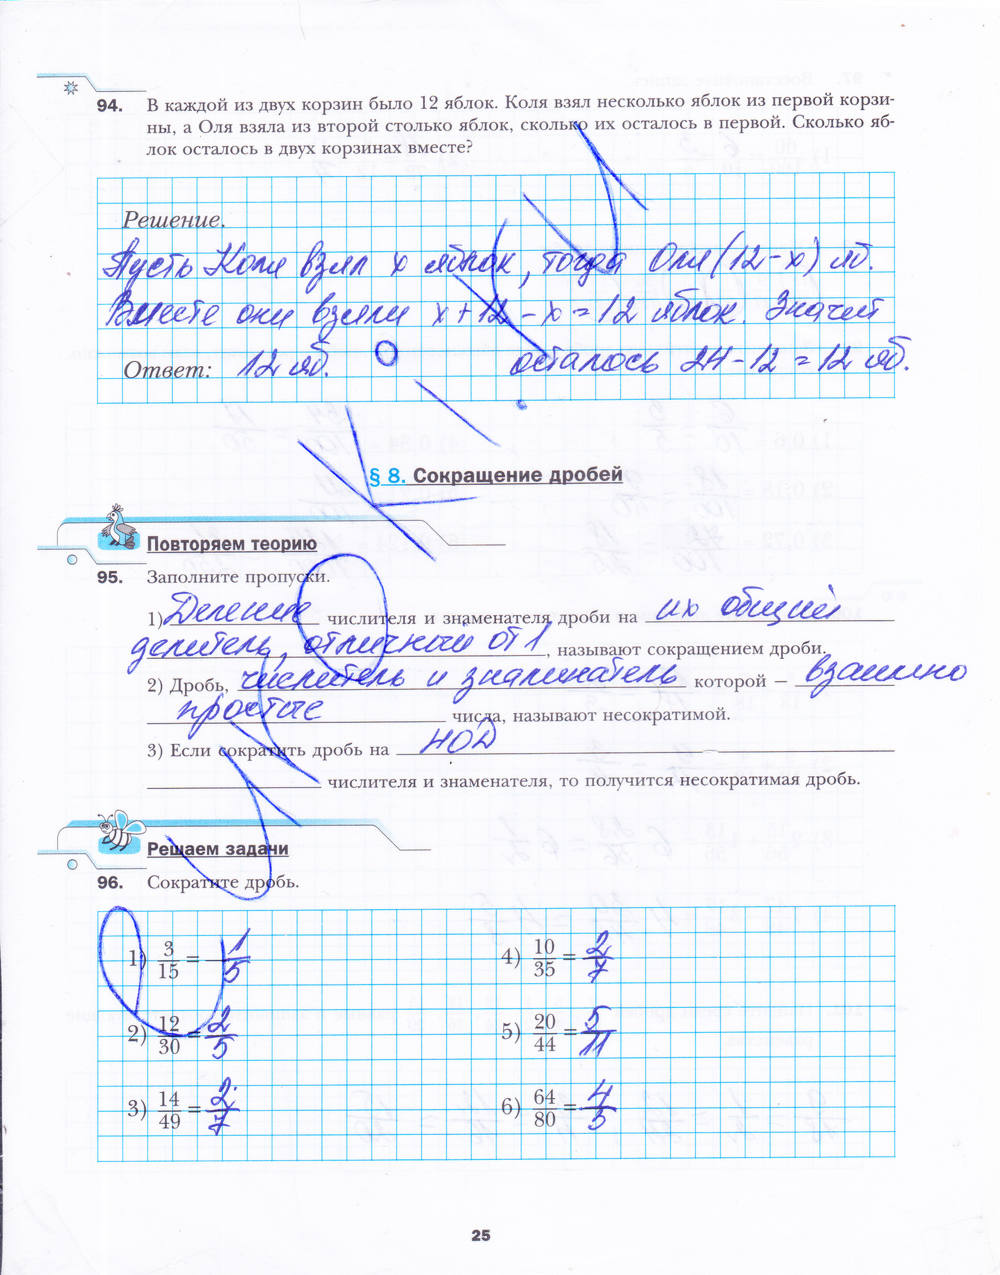 94. В каждой из двух корзин было 12 яблок. Коля взял несколько яблок из первой корзи-
ны, а Оля взяла из второй столько яблок, сколько их осталось в первой. Сколько яб-
лок осталось в двух корзинах вместе?
Решение.
Пусть Коля взял x яблок, тогда Оля (12-x) яб.
Вместе они взяли x+12-x=12 яблок. Значит
Ответ: 12 яб. осталось 24-12=12 яб.
§ 8. Сокращение дробей
Повторяем теорию
95. Заполните пропуски.
1) Деление числителя и знаменателя дроби на их общий
делитель, отличный от 1, называют сокращением дроби.
2) Дробь, числитель и знаменатель которой – взаимно
простые числа, называют несократимой.
3) Если сократить дробь на НОД
числителя и знаменателя, то получится несократимая дробь.
Решаем задачи
96. Сократите дробь.
1) 3/15 = 1/5 4) 10/35 = 2/7
2) 12/30 = 2/5 5) 20/44 = 5/11
3) 14/49 = 2/7 6) 64/80 = 4/5
25